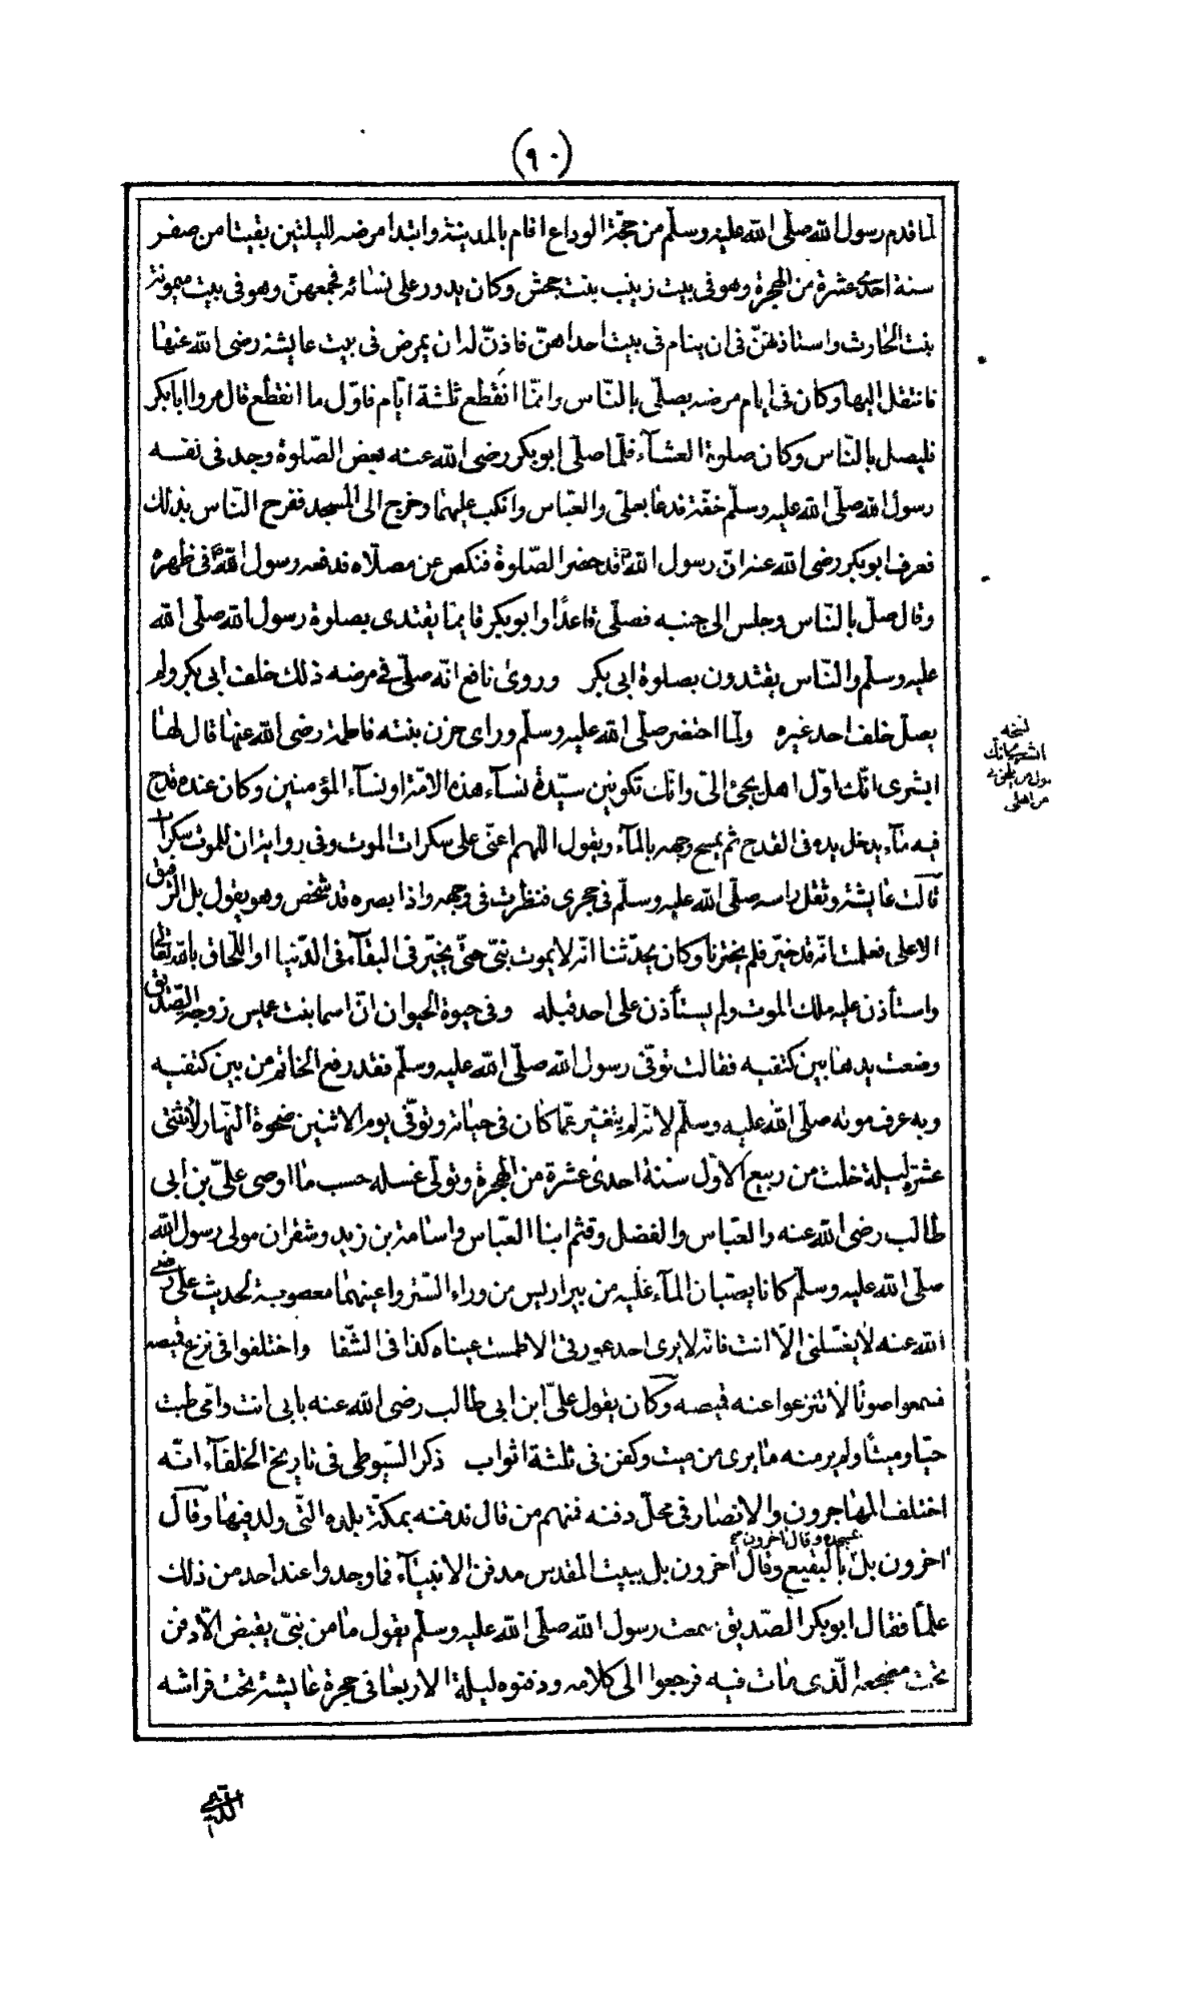 (٩٠)
لما قدم رسول الله صلّى الله عليه وسلّم من حجّة الوداع اقام بالمدينة وابتدا مرضه لليلتين بقيتا من صفر
سنة احدى عشرة من الهجرة وهو فى بيت زينب بنت جحش وكان يدور على نسائه فجمعهنّ وهو فى بيت ميمونة
بنت الحارث واستاذنهنّ فى ان ينام فى بيت احداهنّ فاذنّ له ان يمرض فى بيت عايشة رضى الله عنها
فانتقل اليها وكان فى ايام مرضه يصلّى بالنّاس وانّما انقطع ثلثة ايّام فاوّل ما انقطع قال مروا ابا بكر
فليصل بالنّاس وكان صلوة العشآء فلمّا صلّى ابو بكر رضى الله عنه بعض الصّلوة وجد فى نفسه
رسول الله صلّى الله عليه وسلّم خفّة فدعا بعلى والعبّاس وانكب عليهما وخرج الى المسجد ففرح النّاس بذلك
فعرف ابو بكر رضى الله عنه انّ رسول الله ص قد حضر الصّلوة فنكص عن مصلّاه فدفعه رسول الله ص فى ظهره
وقال صلّ بالنّاس وجلس الى جنبه فصلّى قاعدًا وابو بكر قايما يقتدى بصلوة رسول الله صلّى الله
عليه وسلّم والنّاس يقتدون بصلوة ابى بكر وروى نافع انّه صلّى فى مرضه ذلك خلف ابى بكر ولم
يصل خلف احد غيره ولمّا احتضر صلّى الله عليه وسلّم وراى حزن بنته فاطمة رضى الله عنها قال لها
ابشرى انّك اوّل اهل يجئ الىّ وانّك تكونين سيّدة نسآء هذه الامّة او نسآء المؤمنين وكان عنده قدح
نسخه
ابشرى فانك
من اهلى
فيه مآء يدخل يده فى القدح ثم يمسح وجهه بالمآء ويقول اللهم اعنّى على سكرات الموت وفى رواية ان للموت سكرات
قالت عايشة وثقل راسه صلّى الله عليه وسلّم فى حجرى فنظرت فى وجهه واذا بصره قد شخص وهو يقول بل الرّفيق
الاعلى فعلمت انّه قد خيّر فلم يخترنا وكان يحدّثنا انّه لا يموت نبىّ حتّى يخيّر فى البقآء فى الدّنيا او اللّحاق بالله تعالى
واستأذن عليه ملك الموت ولم يستأذن على احد قبله وفى حيوة الحيوان انّ اسما بنت عميس زوجة الصّديق
وضعت يدها بين كتفيه فقالت توفّى رسول الله صلّى الله عليه وسلّم فقد رفع الخاتم من بين كتفيه
وبه عرف موته صلّى الله عليه وسلّم لانّه لم يتغير عمّا كان فى حياته وتوفّى يوم الاثنين ضحوة النّهار لاثنتى
عشرة ليلة خلت من ربيع الاوّل سنة احدى عشرة من الهجرة وتولّى غسله حسب ما اوصى علىّ بن أبى
طالب رضى الله عنه والعبّاس والفضل وقثم ابنا العبّاس واسامة بن زيد وشقران مولى رسول الله
صلّى الله عليه وسلّم كانا يصبّان المآء عليه من بير اريس من وراء السّتر واعينهما معصوبة لحديث على رضى
الله عنه لا يغسّلنى الّا انت فانّه لا يرى احد عورتى الا طمست عيناه كذا فى الشّفا واختلفوا فى نزع قميصه
فسمعوا صوتًا لا تنزعوا عنه قميصه وكان يقول علىّ ابن ابى طالب رضى الله عنه بابى انت وامّى طبت
حيّا وميتًا ولم ير منه ما يرى من ميت وكفن فى ثلثة اثواب ذكر السّيوطى فى تاريخ الخلفآء انّه
اختلف المهاجرون والانصار فى محلّ دفنه فمنهم من قال ندفنه بمكّة بلده الّتى ولد فيها وقال
بمسجده وقال اخرون
اخرون بل بالبقيع وقال اخرون بل ببيت المقدس مدفن الانبيآء فما وجدوا عند احد من ذلك
علمًا فقال ابو بكر الصّديق سمعت رسول الله صلّى الله عليه وسلّم يقول ما من نبىّ يقبض الّا دفن
تحت مضجعه الّذى مات فيه فرجعوا الى كلامه ودفنوه ليلة الاربعا فى حجرة عايشة تحت فراشه